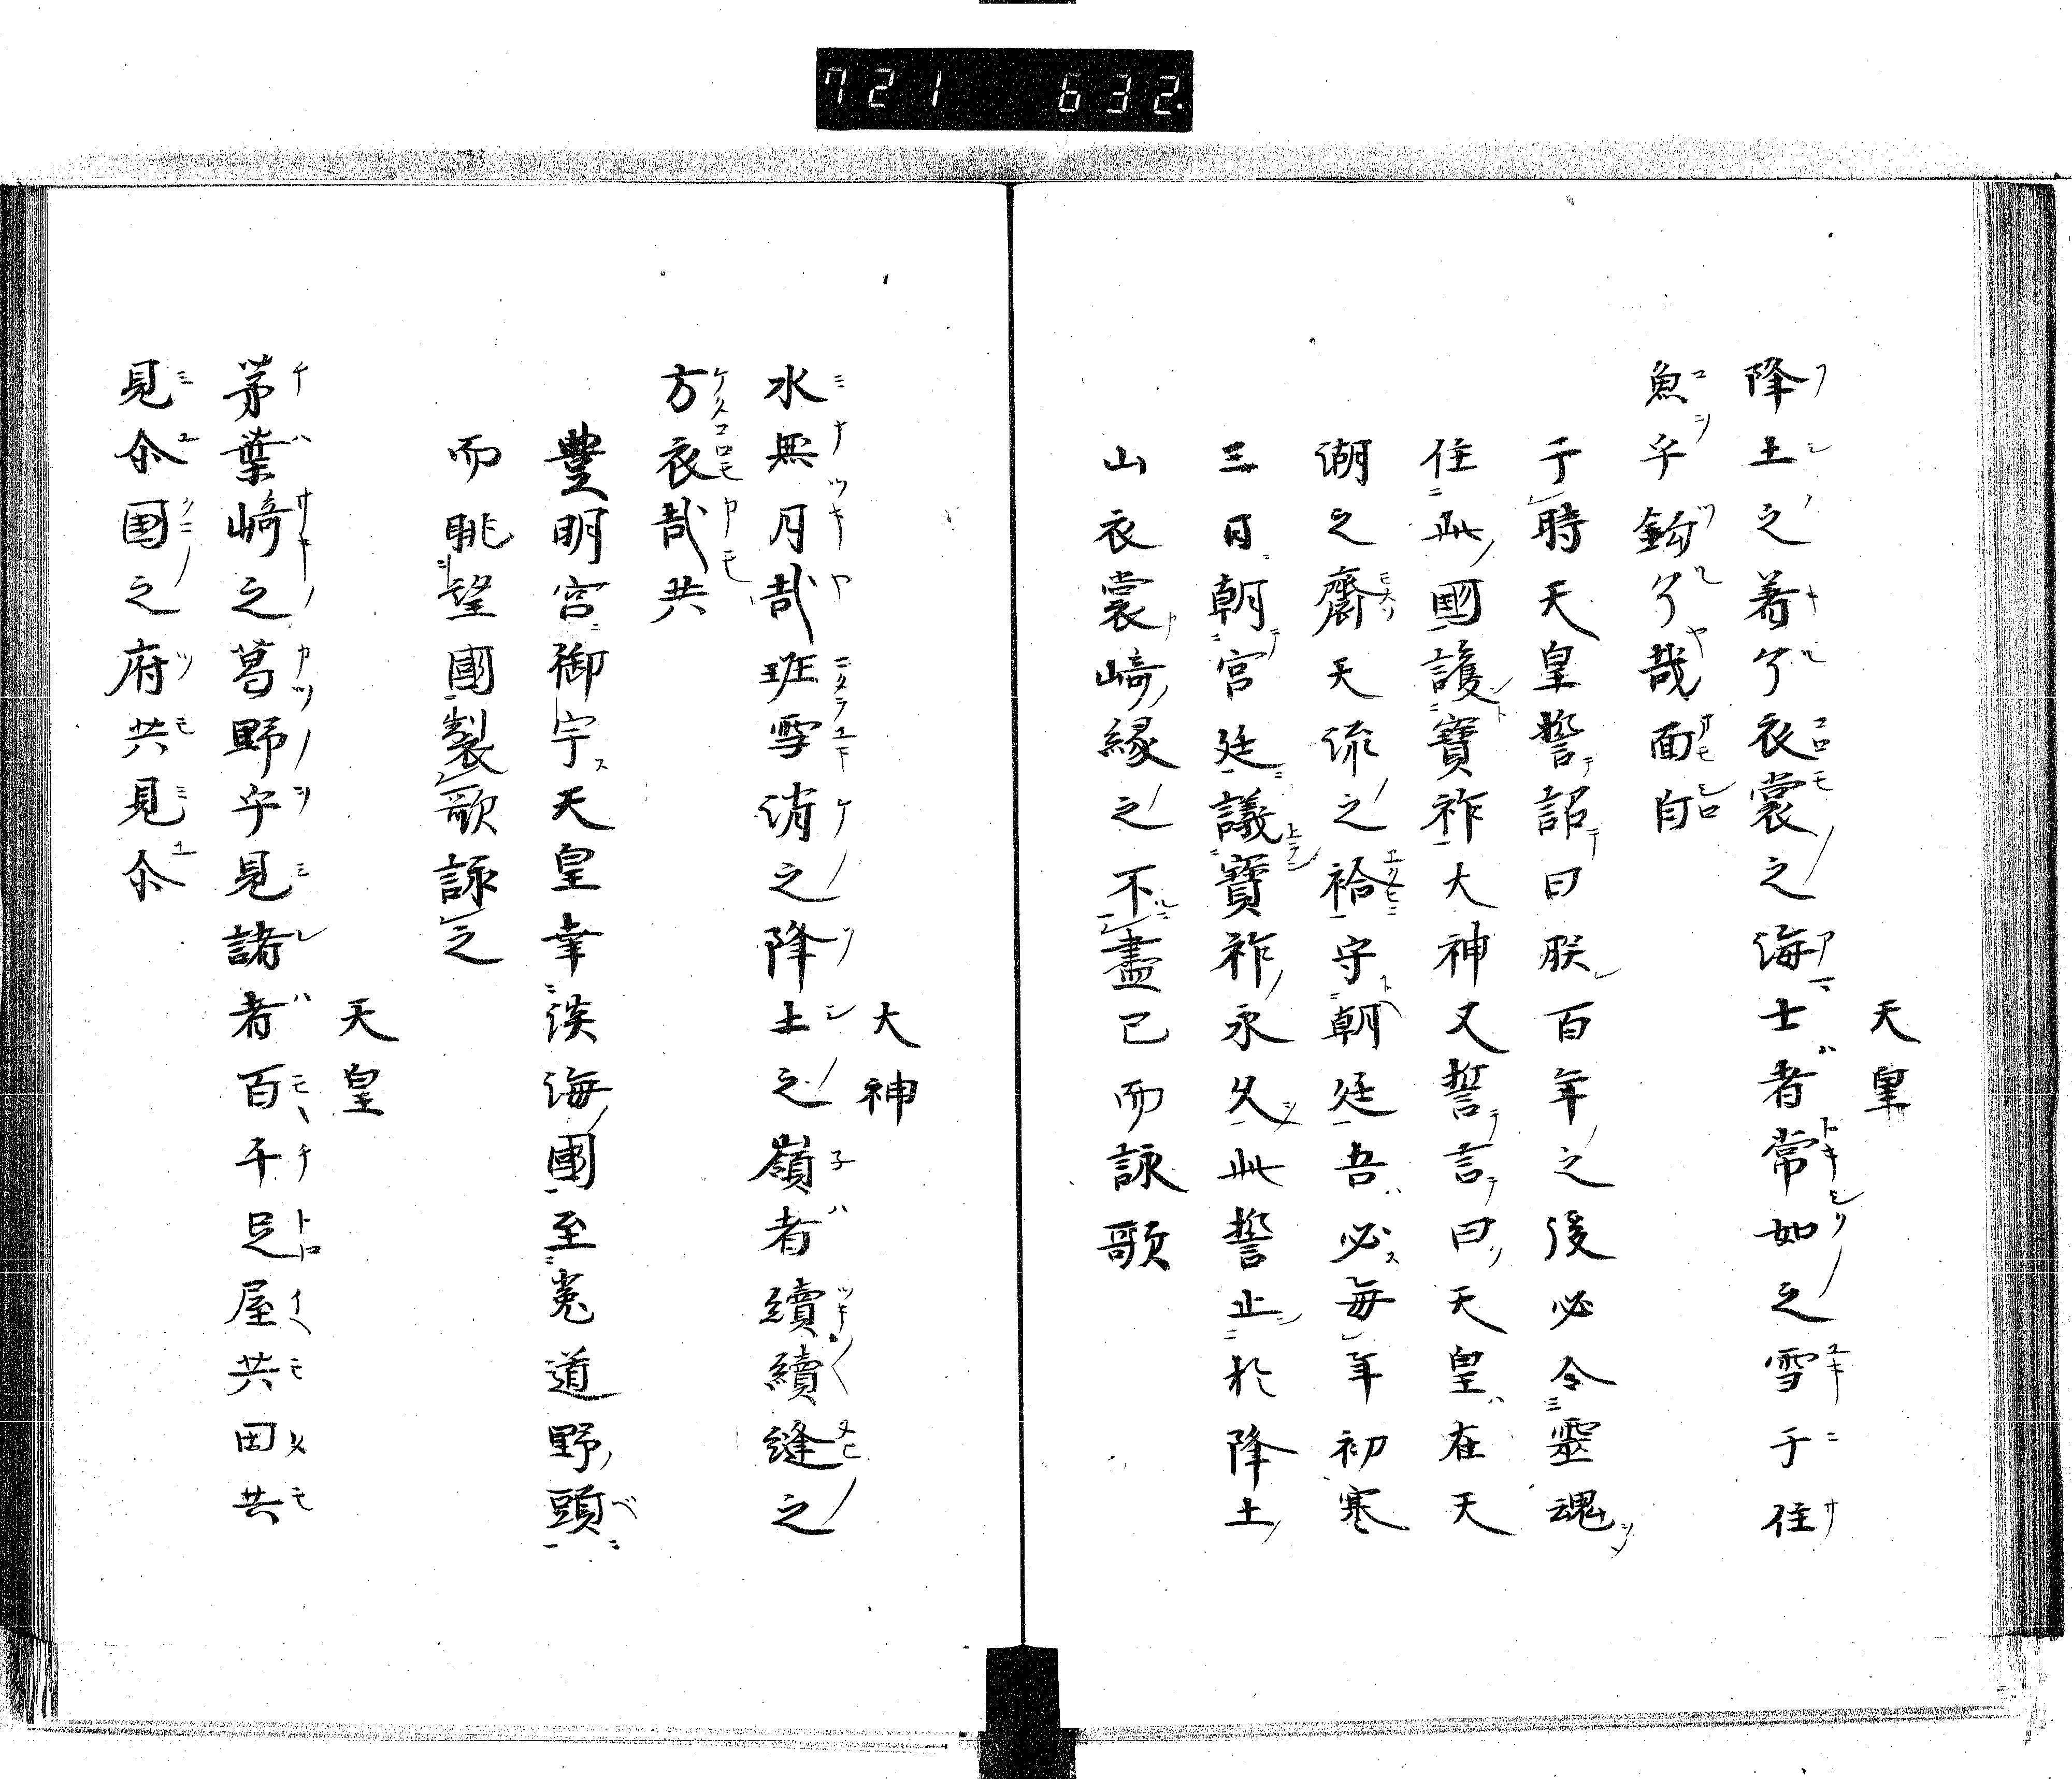 721 632.
天皇
降土之著尓衣裳之海士者常如之雪于住
魚乎鈎尓哉面白
于時天皇誓詔曰朕百年之後必令靈魂
住此國護寶祚大神又誓言曰天皇在天
湖之齋天流之袷守朝廷吾必毎年初寒
三日朝宮廷議寶祚永久此誓止於降土
山衣裳﨑縁之不盡已而詠歌
大神
水無月哉班雪消之降土之嶺者續續縫之
方衣哉共
豐明宮御宇天皇幸淡海國至菟道野頭
而眺望國製歌詠之
天皇
茅葉﨑之葛野乎見諸者百千足屋共田共
見尒国之府共見尒